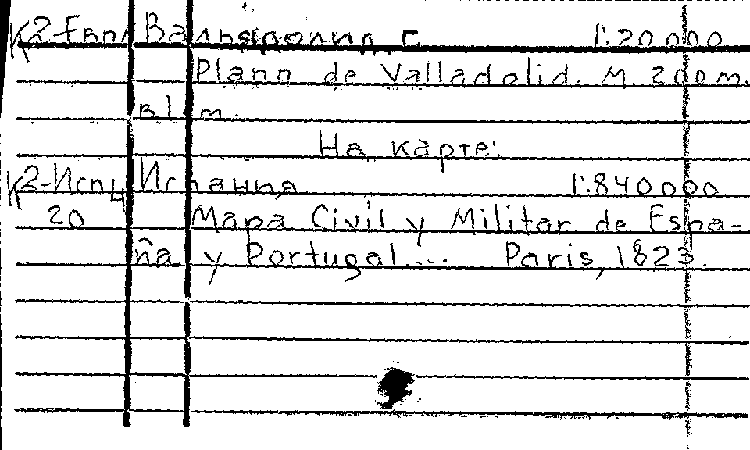 К2-Евр Вальядолид, г. 1:20 000
Plano de Valladolid. М 200 m.
в 1 m.
На карте:
К2-Испан Испания 1:840000
20 Mapa Civil y Militar de Espa-
ña y Portugal... Paris, 1823.